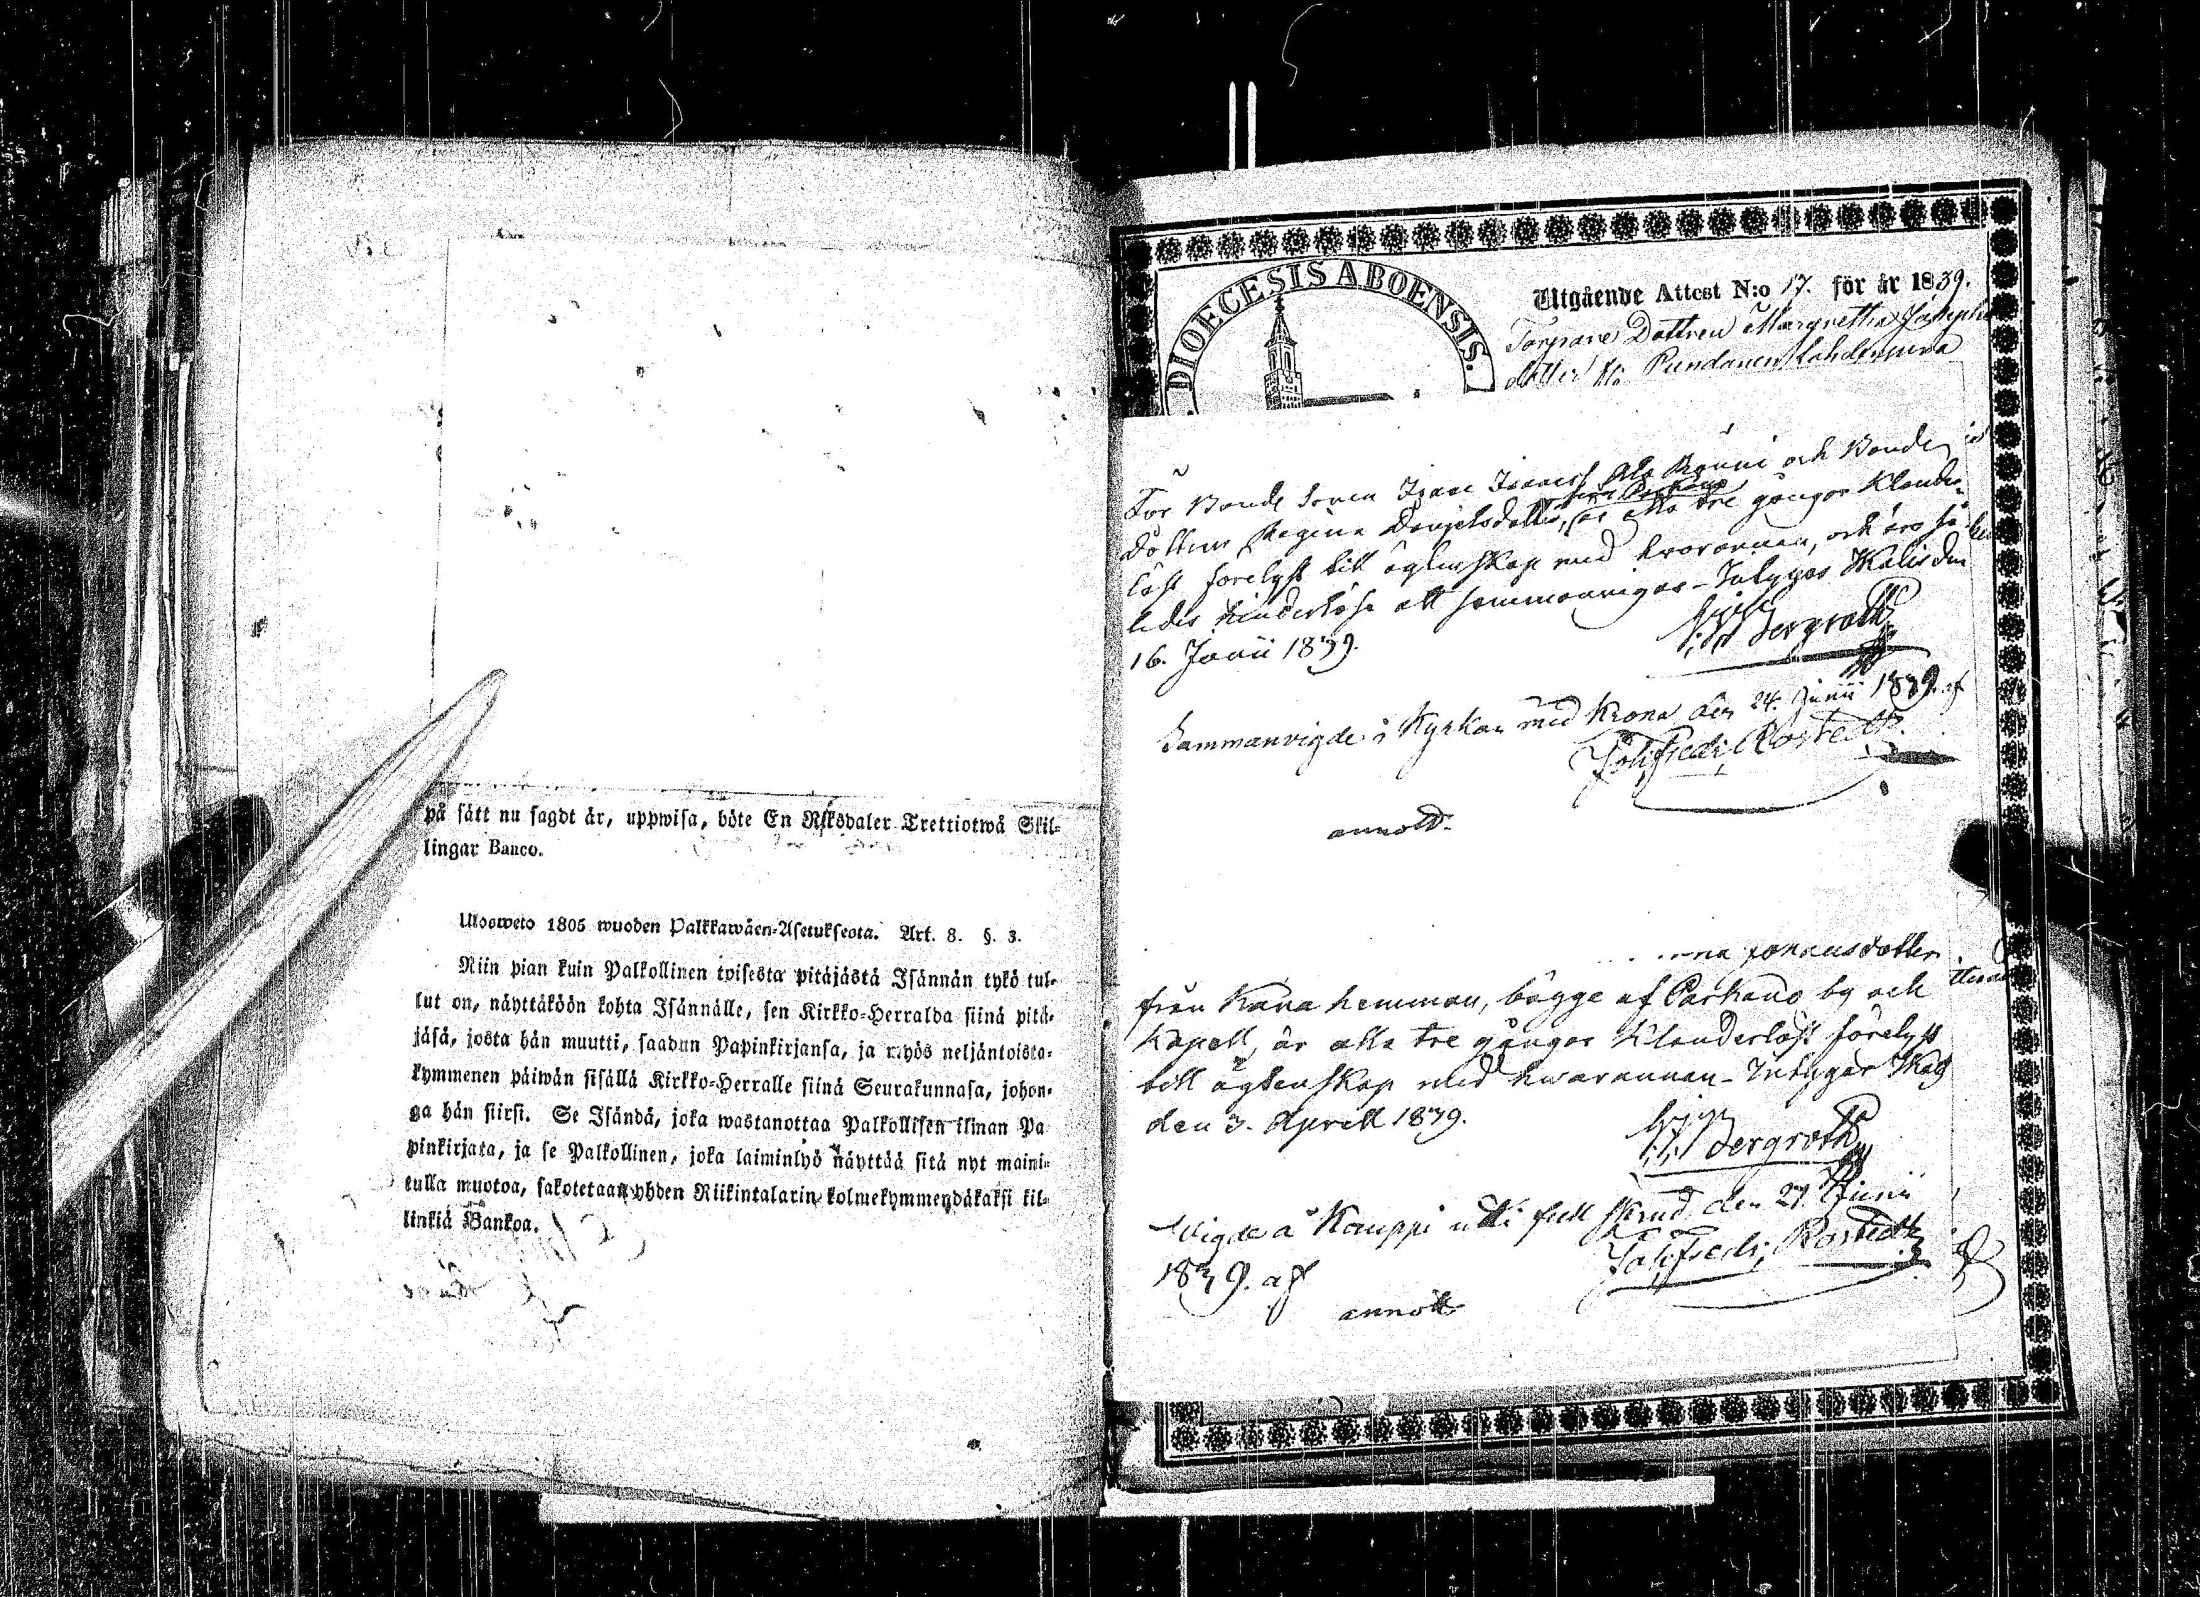 på sätt nu sagdt är, uppwisa, böte En Riksdaler Trettiotwå Skil-
lingar Banco.
Ulosweto 1805 wuoden Palkkawäen-Asetuksesta. Art. 8. §. 3.
Niin pian kuin Palkollinen toisesta pitäjästä Isännän tykö tul-
lut on, näyttäköön kohta Isännälle, sen Kirkko-Herralda siinä pitä-
jäsä, josta hän muutti, saadun Papinkirjansa, ja myös neljäntoista-
kymmenen päiwän sisällä Kirkko-Herralle siinä Seurakunnasa, johon-
ga hän siirsi. Se Isändä, joka wastanottaa Palkollisen ilman Pa
pinkirjata, ja se Palkollinen, joka laiminlyö näyttää sitä nyt maini-
tulla muotoa, sakotetaan yhden Riikintalarin kolmekymmendäkaksi kil-
linkiä Bankoa.
DIOECESIS ABOENSIS.
Utgående Attest N:o 17. för år 1839.
Torpare Dottren Margretha
dotter fr. Lahdenperä
För Bonde Sonen Isaac Isaacss. Ala Rönni och Bonde
Dottren Regina Danjelsdotter, är alla tre gångor Klander-
löst förelyst till ägtenskap med hvarannan, och äro så-
ledes hinderlöse att sammanvigas - Intygas Ikalis den
16. Junii 1839.
Bergroth
Sammanvigde i Kyrkan med Krona den 24. Junii 1839. af
Joh. Fredr. Rostedt.
annott.
Johansdotter
från Kana hemman, bägge af Parkano by och
Kapell, är alla tre gångor Klanderlöst förelyst
till ägtenskap med hwarannan - Intygar Ikalis
den 3. Aprill 1839.
Bergroth
Wigde å Kauppi uti full skrud den 27. Junii
1839. af
Joh. Fredr. Rostedt
annott